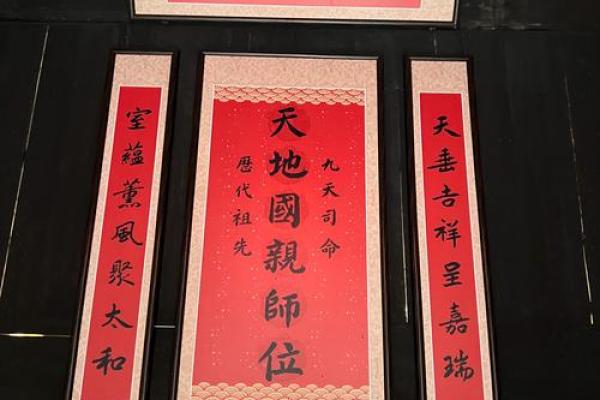 天垂吉祥呈嘉瑞
九天司命
天地國親師位
歷代祖先
室蘊薰風聚太和